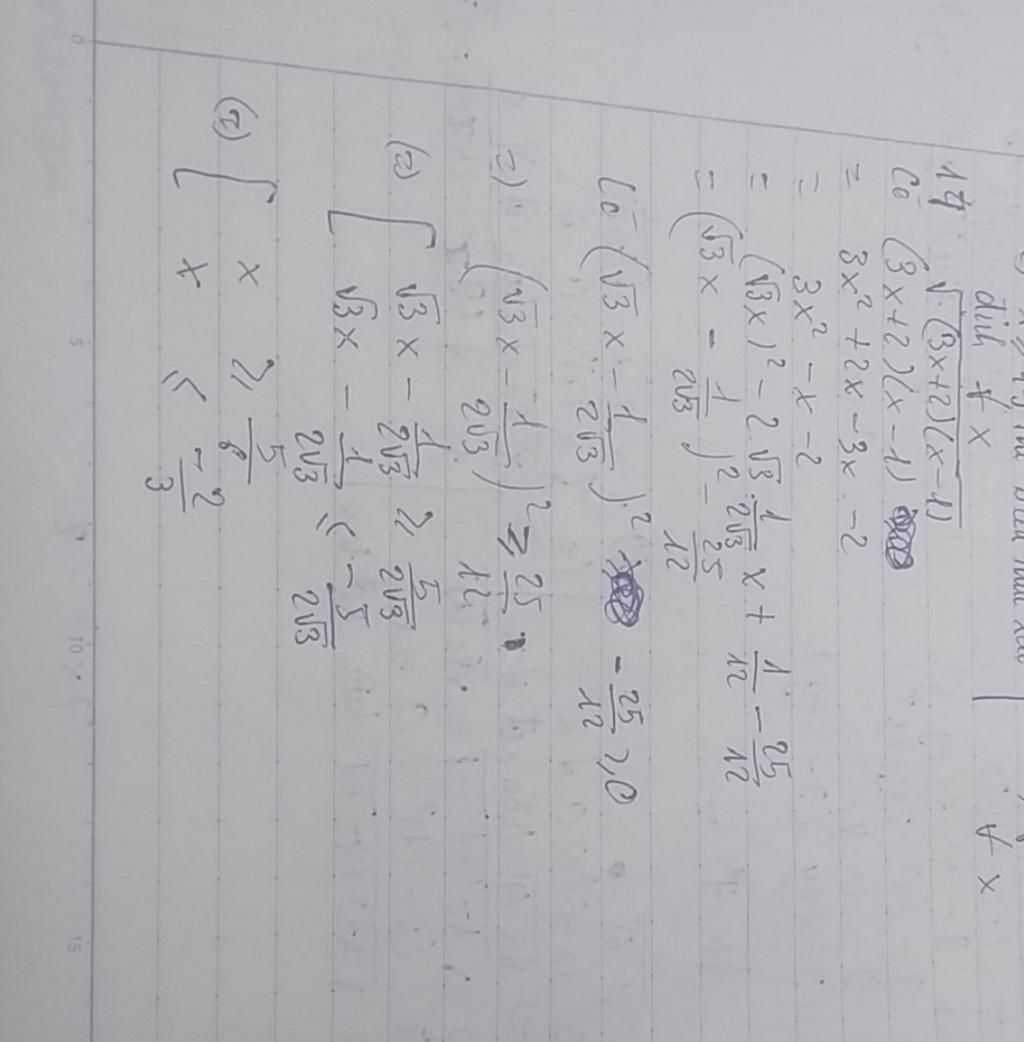 định ∀ x
∀ x
14 √(3x+2)(x-1)
Có (3x+2)(x-1)
= 3x² + 2x - 3x - 2
= 3x² - x - 2
= (√3x)² - 2√3 · 1/2√3 x + 1/12 - 25/12
= (√3x - 1/2√3)² - 25/12
Có (√3x - 1/2√3)² - 25/12 ≥ 0
=) (√3x - 1/2√3)² ≥ 25/12
(2) [ √3x - 1/2√3 ≥ 5/2√3
√3x - 1/2√3 ≤ -5/2√3
[ x ≥
x ≤ -2/3
0
5
10
15